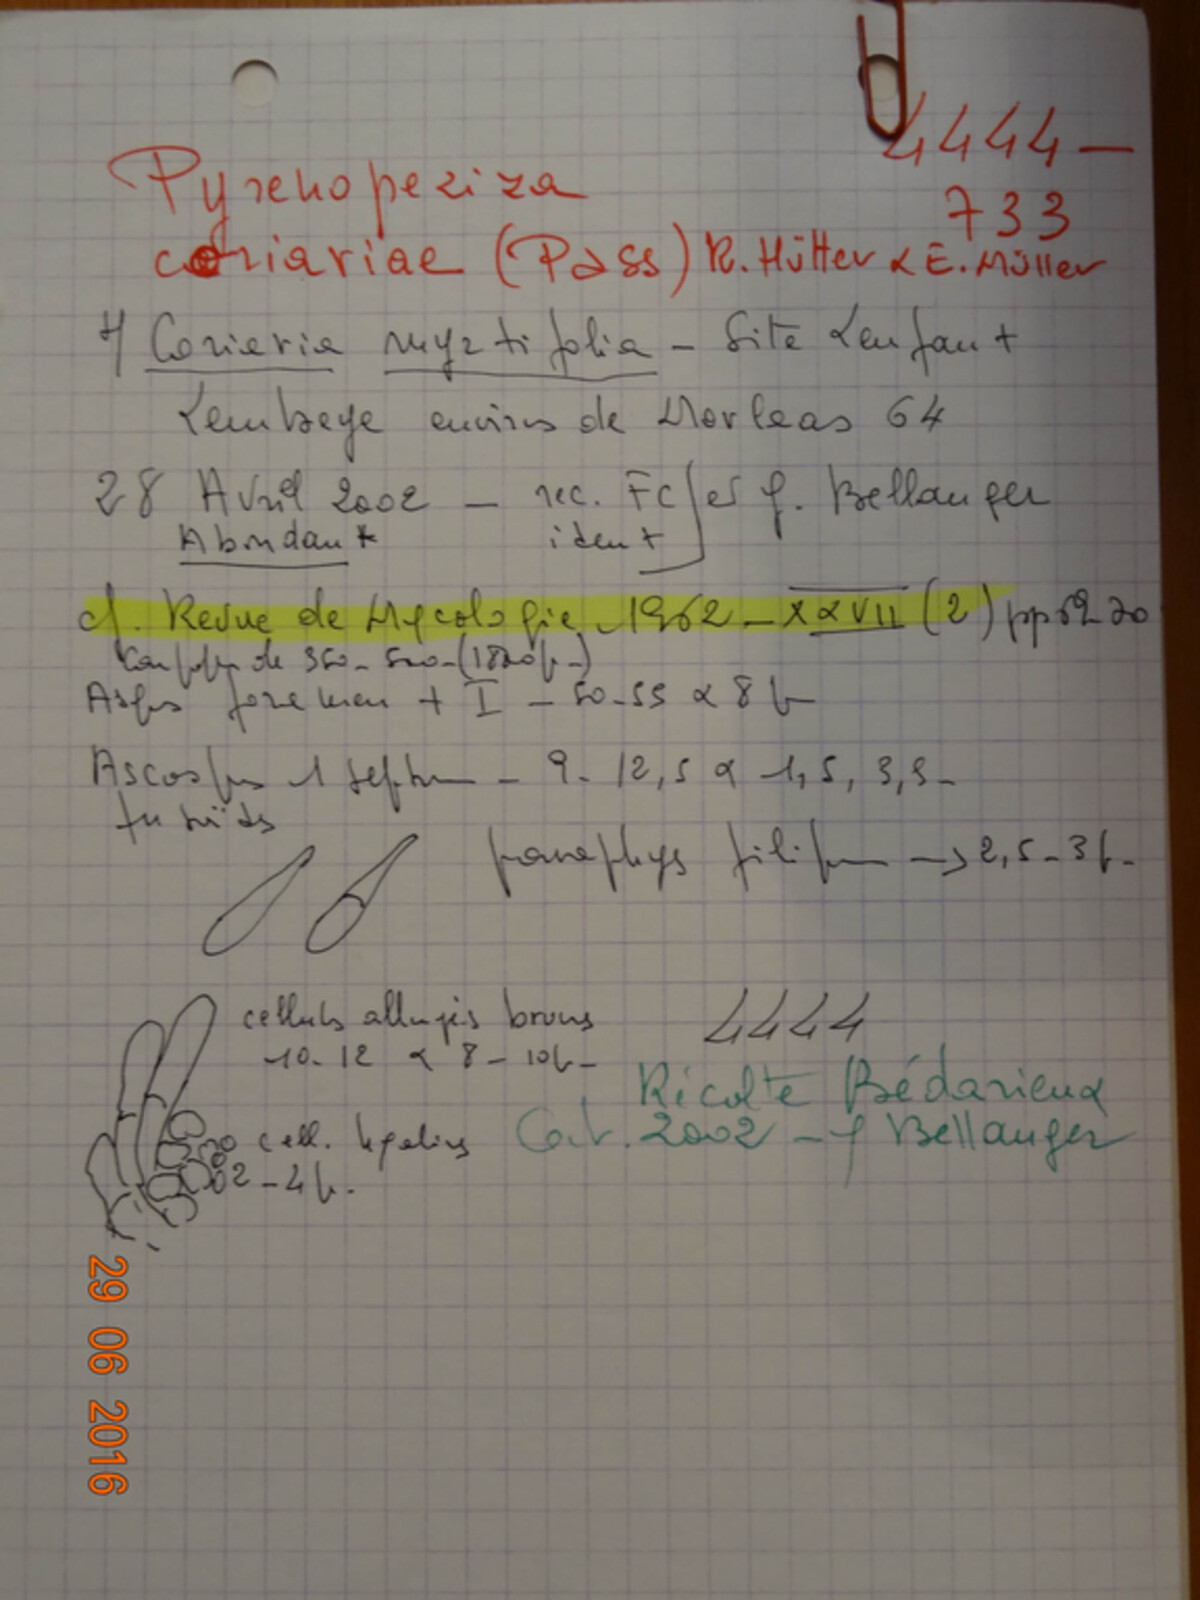 4444 —
733
Pyrenopeziza
coriariae (Pass) R. Hütter & E. Müller
Coriaria myrtifolia — Site Lenfant
Lembeye environs de Morleas 64
28 Avril 2002 — rec. FC et J. Bellanger
Abondant ident
cf. Revue de Mycologie 1962 — XXVII (2) pp 69 70
de 350 - 500
Asques + I — 50-55 x 8 µ
Ascospores 1 — 9-12,5 x 1,5, 3,5 —
paraphys → 2,5 - 3 µ —
cellules allongées brunes
10-12 x 8-10 µ —
4444
Récolte Bédarieux
cell. hyalines
2-4 µ.
2002 — J Bellanger
29 06 2016